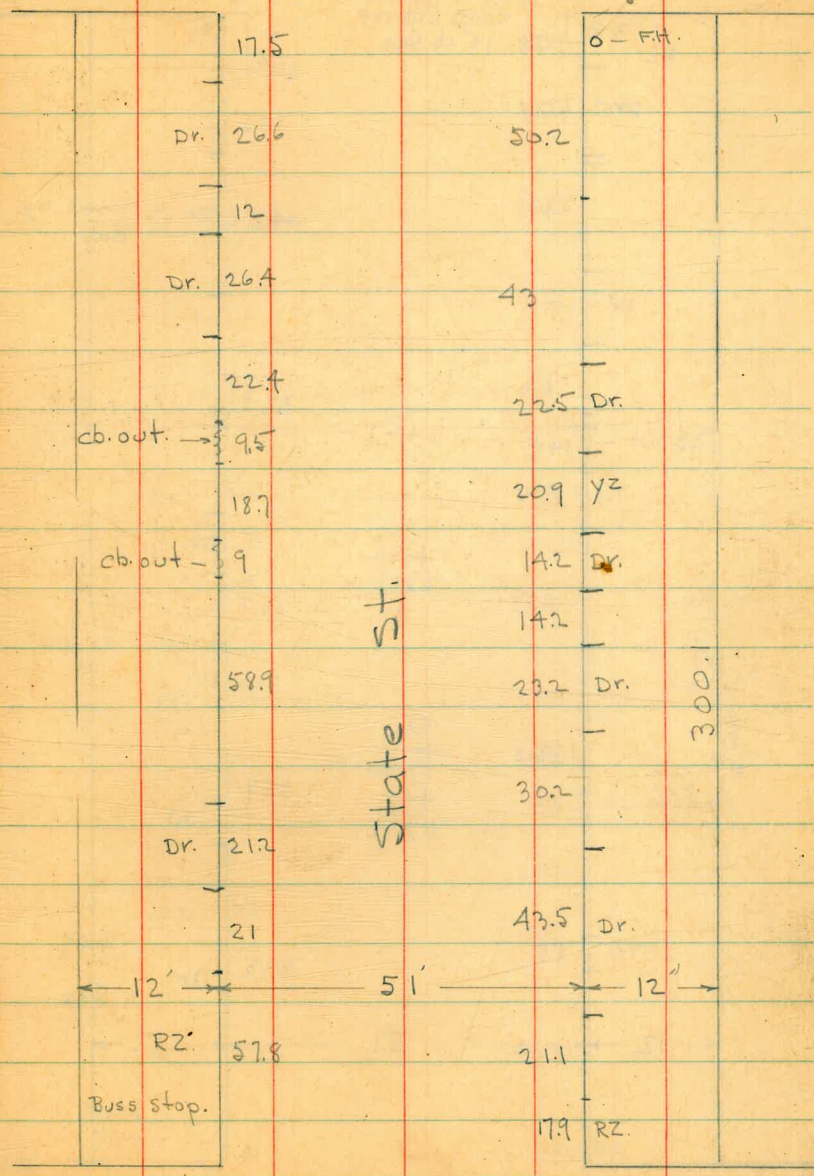 17.5
Dr. 26.6
12
Dr. 26.4
22.4
cb. out. → 9.5
18.7
cb. out - 9
58.9
Dr. 21.2
21
12'
RZ. 57.8
Buss Stop.
State St.
51'
o - F.H.
50.2
43
22.5 Dr.
20.9 YZ
14.2 Dr.
14.2
23.2 Dr.
30.2
43.5 Dr.
12"
21.1
17.9 RZ.
300.1